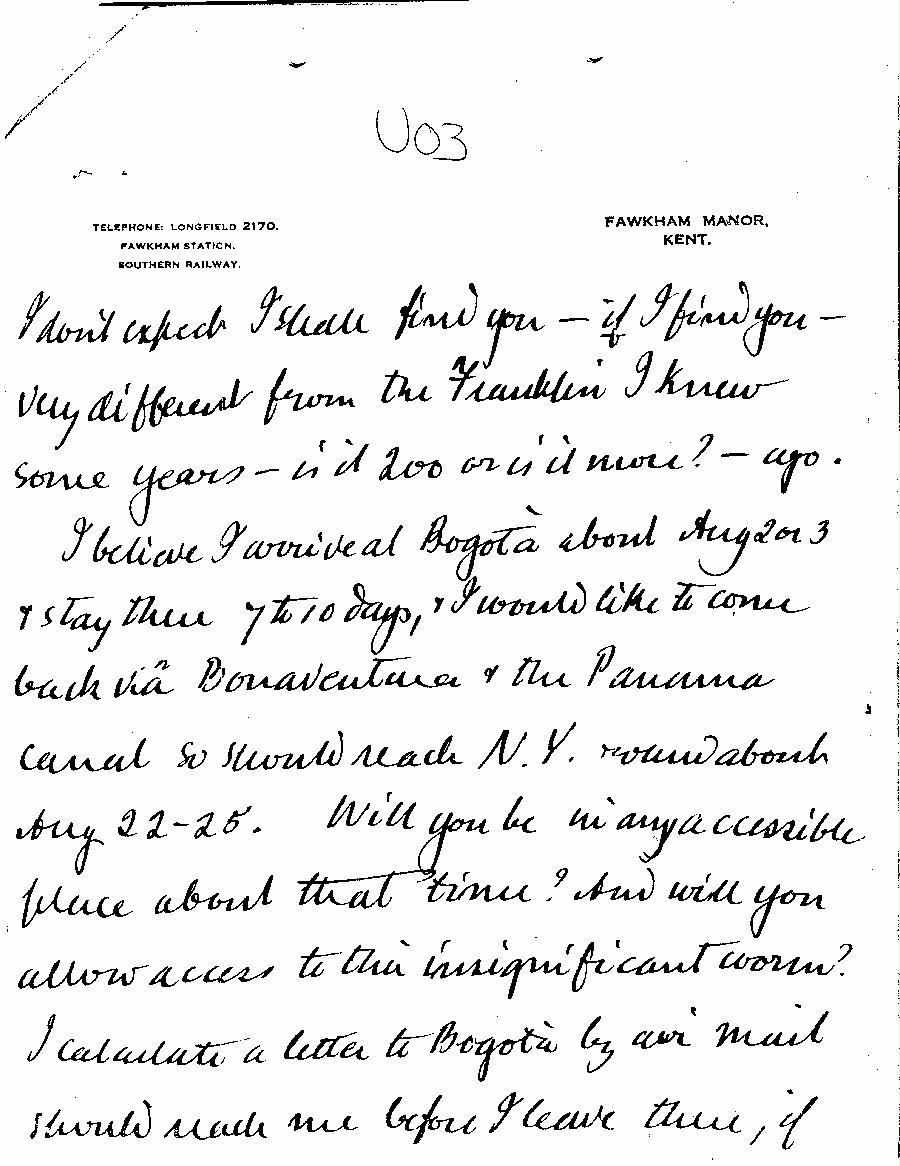 U03
TELEPHONE: LONGFIELD 2170.
FAWKHAM STATION,
SOUTHERN RAILWAY.
FAWKHAM MANOR,
KENT.
I don't expect I shall find you – if I find you –
very different from the Franklin I knew
some years – is it 200 or is it more? – ago.
I believe I arrive at Bogotà about Aug 2 or 3
& stay there 7 to 10 days, & I would like to come
back viâ Bonaventura & the Panama
canal so should reach N.Y. round about
Aug 22-25. Will you be in any accessible
place about that time? And will you
allow access to this insignificant worm?
I calculate a letter to Bogotà by air mail
should reach me before I leave there, if